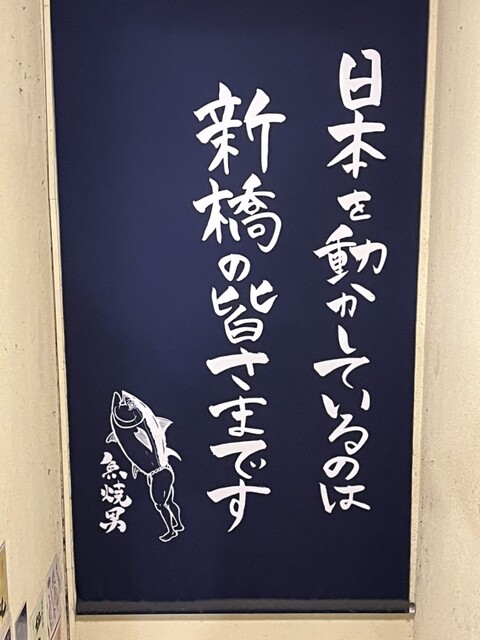 日本を動かしているのは
新橋の皆さまです
魚焼男